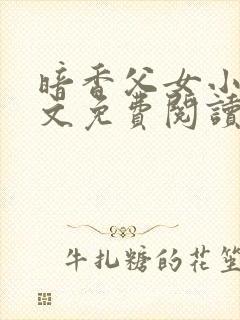 暗香父女小
文免費閱讀
牛扎糖的花笙